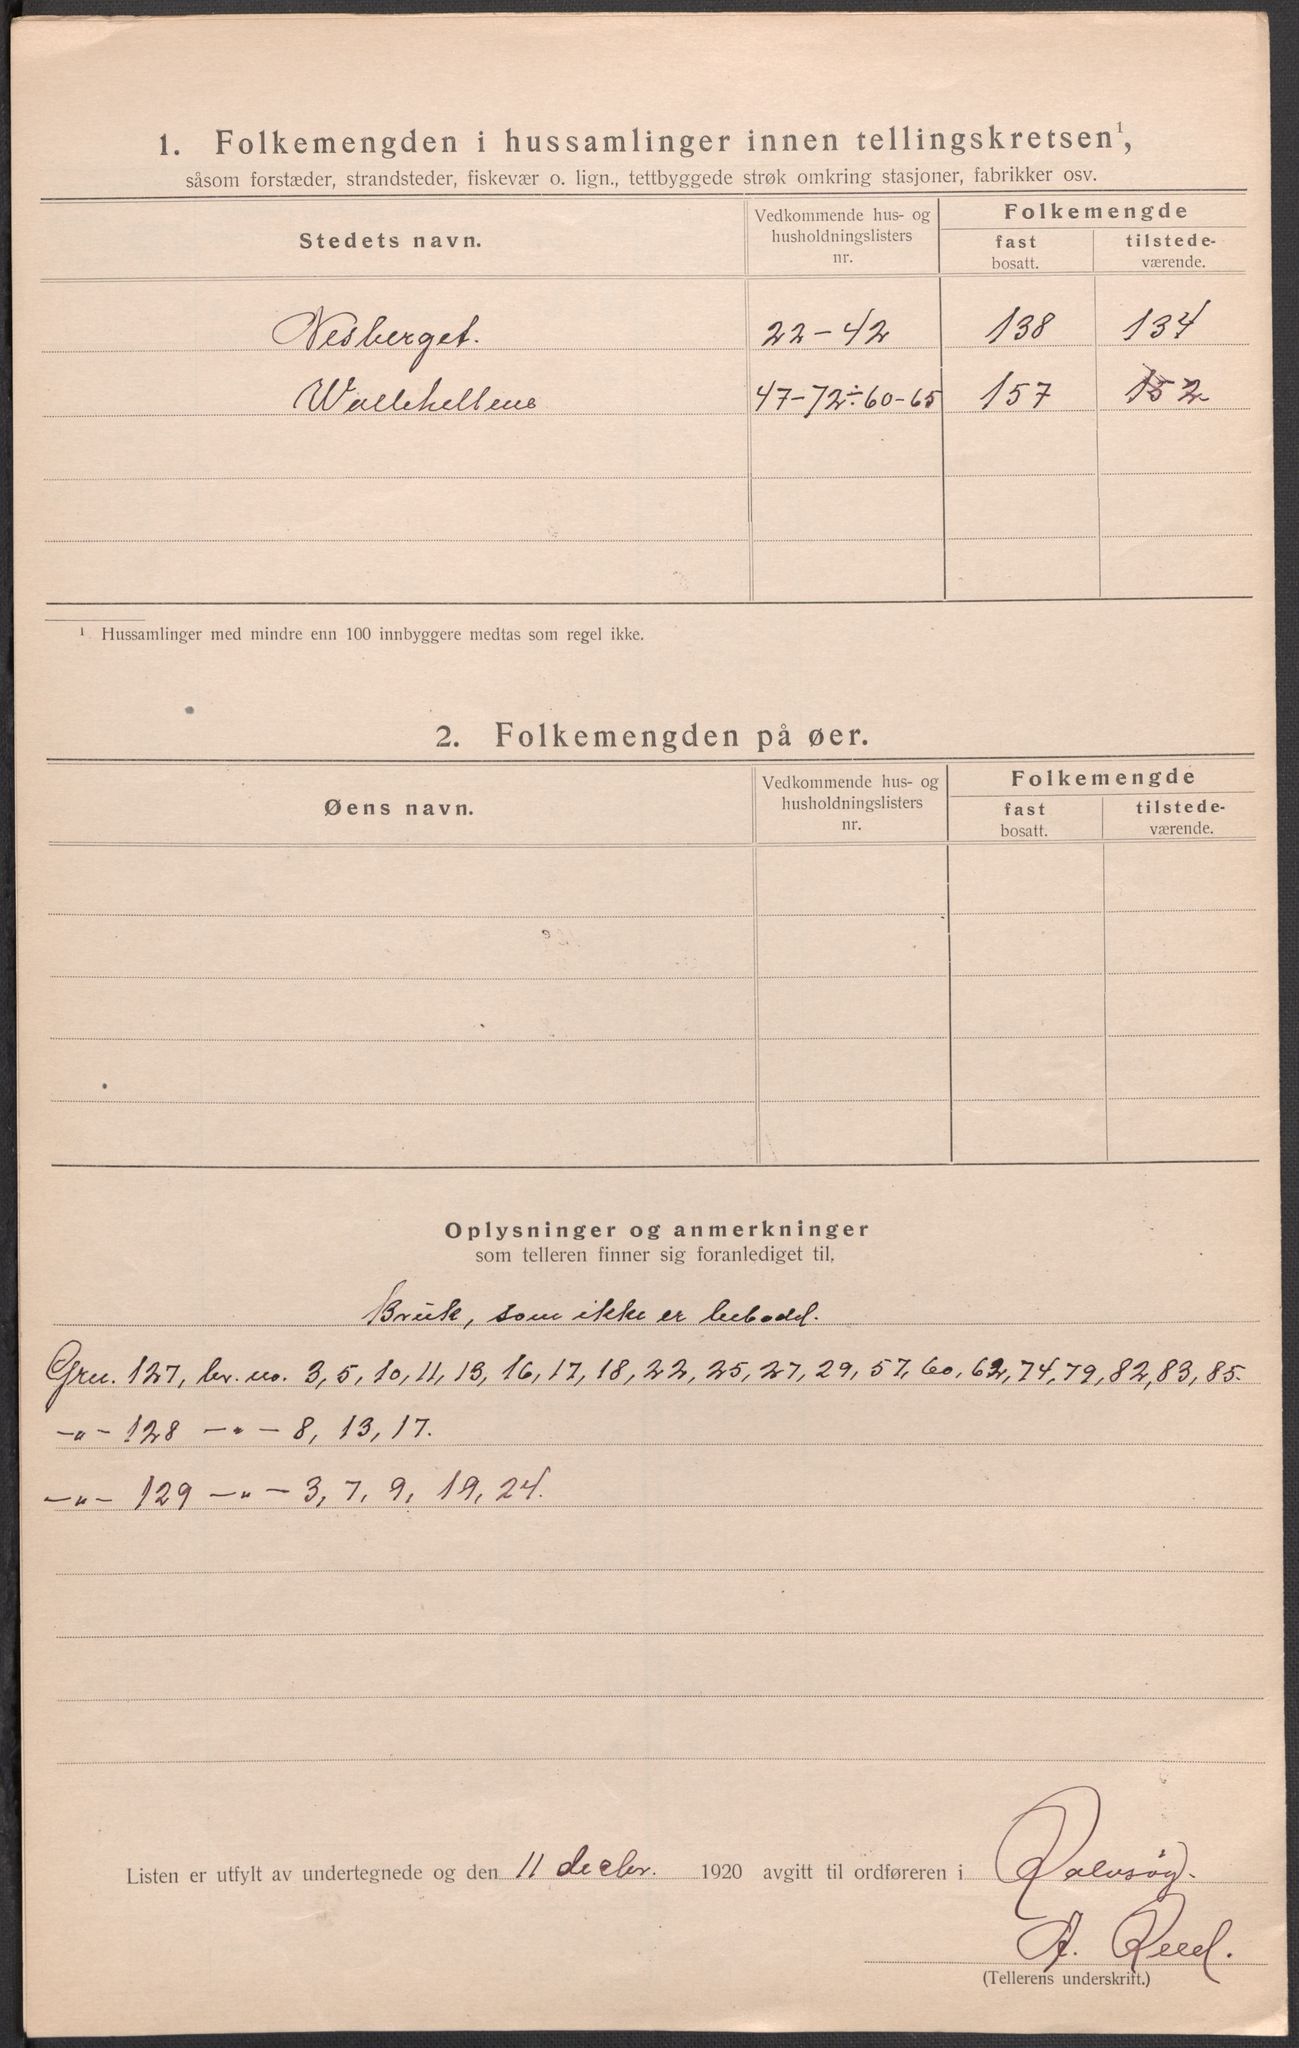 1. Folkemengden i hussamlinger innen tellingskretsen¹,
såsom forstæder, strandsteder, fiskevær o. lign., tettbyggede strøk omkring stasjoner, fabrikker osv.
Stedets navn. Vedkommende hus- og husholdningslisters nr. Folkemengde fast bosatt. tilstede-værende.
Nesberget. 22-42 138 134
47-72÷60-65 157 152
¹ Hussamlinger med mindre enn 100 innbyggere medtas som regel ikke.
2. Folkemengden på øer.
Øens navn. Vedkommende hus- og husholdningslisters nr. Folkemengde fast bosatt. tilstede-værende.
Oplysninger og anmerkninger
som telleren finner sig foranlediget til.
Bruk, som ikke er bebodd.
Grn. 127, br. no. 3, 5, 10, 11, 13, 16, 17, 18, 22, 25, 27, 29, 57, 60, 62, 74, 79, 82, 83, 85.
-"- 128 -"- 8, 13, 17.
-"- 129 -"- 3, 7, 9, 19, 24.
Listen er utfylt av undertegnede og den 11 decbr. 1920 avgitt til ordføreren i Rolvsøy.
A. Rued.
(Tellerens underskrift.)